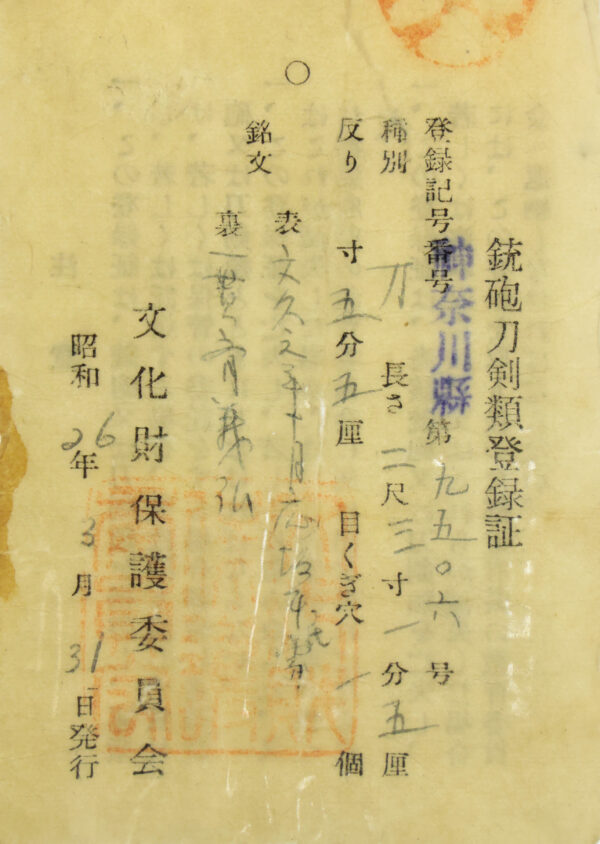 銃砲刀剣類登録証
登録記号番号 神奈川縣 第九五〇六号
種別 刀 長さ 二尺三寸一分五厘
反り 寸五分五厘 目くぎ穴 一個
銘文
表 文久元年十月応
裏 一貫斎義弘
文化財保護委員会
昭和26年3月31日発行